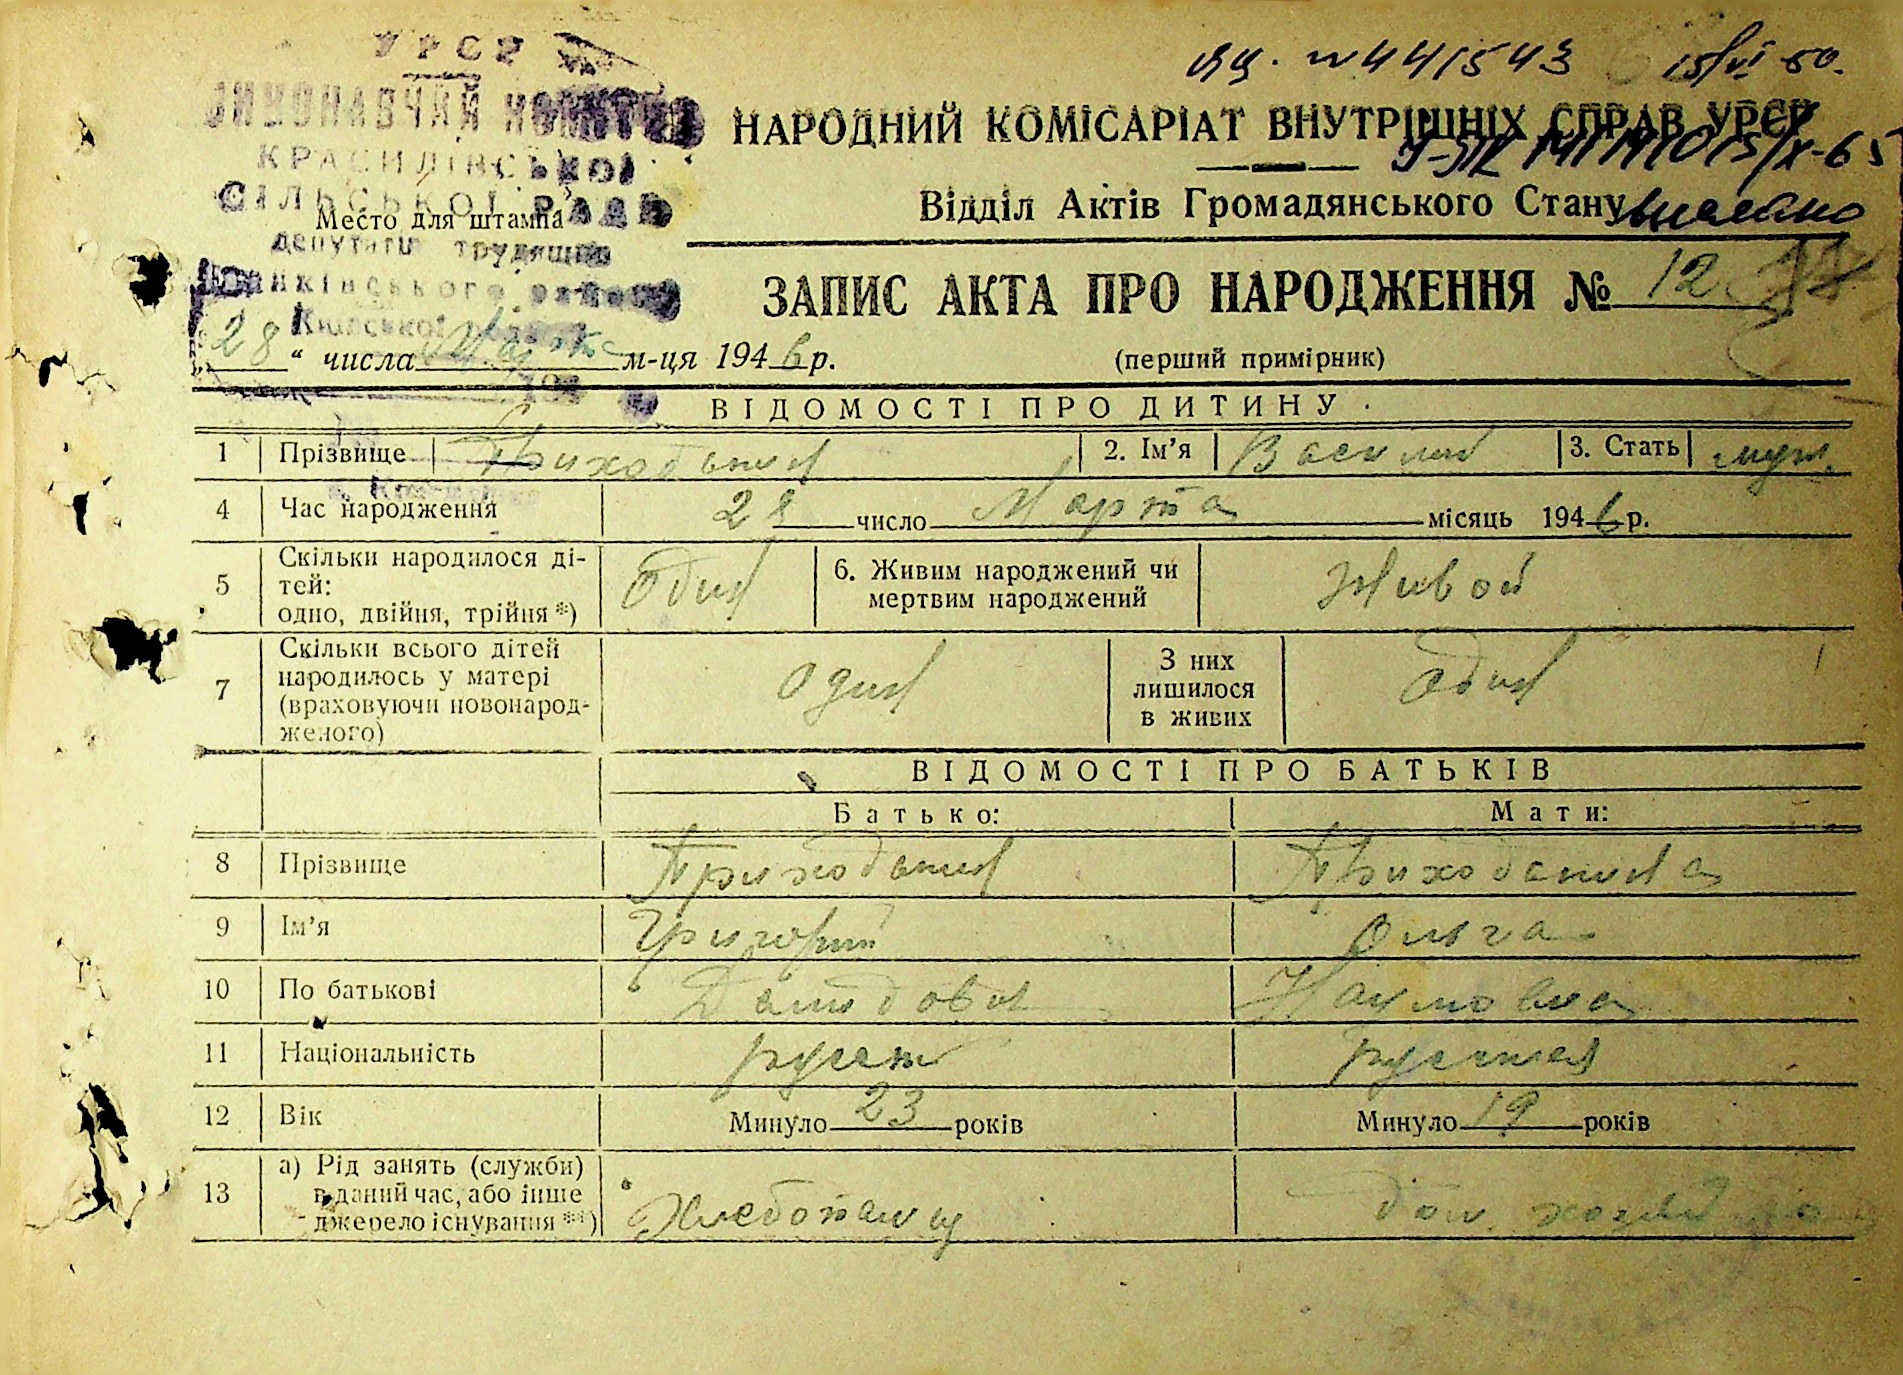 УРСР
ВИКОНАВЧИЙ КОМІТЕТ
КРАСИЛІВСЬКОЇ
СІЛЬСЬКОЇ РАДИ
депутатів трудящих
Іванківського району
Київської
Место для штампа
№ 441543 15/VI 50.
НАРОДНИЙ КОМІСАРІАТ ВНУТРІШНІХ СПРАВ УРСР
Відділ Актів Громадянського Стану
ЗАПИС АКТА ПРО НАРОДЖЕННЯ № 12
„28“ числа Марта м-ця 1946 р.
(перший примірник)
ВІДОМОСТІ ПРО ДИТИНУ
1 Прізвище Приходькин 2. Ім’я Василий 3. Стать муж.
4 Час народження 28 число Марта місяць 1946 р.
5 Скільки народилося ді-
тей:
одно, двійня, трійня *) Один 6. Живим народжений чи
мертвим народжений Живой
7 Скільки всього дітей
народилось у матері
(враховуючи новонарод-
женого) один З них
лишилося
в живих один
ВІДОМОСТІ ПРО БАТЬКІВ
Батько: Мати:
8 Прізвище Приходькин Приходькина
9 Ім’я Григорий Ольга
10 По батькові Демидович Наумовна
11 Національність русск русская
12 Вік Минуло 23 років Минуло 19 років
13 а) Рід занять (служби)
в даний час, або інше
джерело існування **) Хлебопашец дом. хозяйство